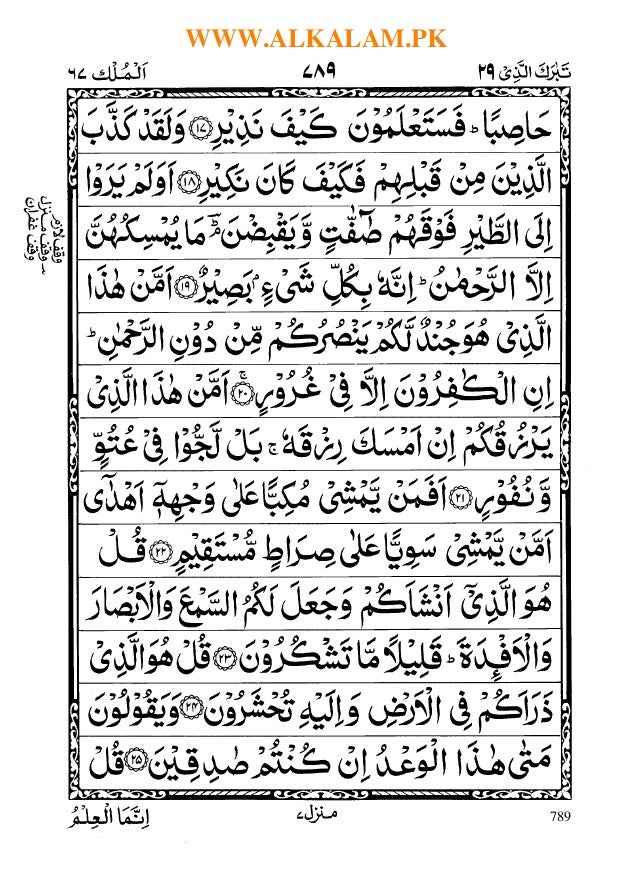 WWW.ALKALAM.PK
تَبٰرَكَ الَّذِىْ ٢٩ ٧٨٩ اَلْمُلْك ٦٧
حَاصِبًا ؕ فَسَتَعْلَمُوْنَ كَيْفَ نَذِيْرِ ﴿١٧﴾ وَلَقَدْ كَذَّبَ
الَّذِيْنَ مِنْ قَبْلِهِمْ فَكَيْفَ كَانَ نَكِيْرِ ﴿١٨﴾ اَوَلَمْ يَرَوْا
اِلَى الطَّيْرِ فَوْقَهُمْ صٰٓفّٰتٍ وَّيَقْبِضْنَ ؔۘؕ مَا يُمْسِكُهُنَّ
اِلَّا الرَّحْمٰنُ ؕ اِنَّهٗ بِكُلِّ شَىْءٍۭ بَصِيْرٌ ﴿١٩﴾ اَمَّنْ هٰذَا
الَّذِىْ هُوَ جُنْدٌ لَّكُمْ يَنْصُرُكُمْ مِّنْ دُوْنِ الرَّحْمٰنِ ؕ
اِنِ الْكٰفِرُوْنَ اِلَّا فِىْ غُرُوْرٍ ۚ ﴿٢٠﴾ اَمَّنْ هٰذَا الَّذِىْ
يَرْزُقُكُمْ اِنْ اَمْسَكَ رِزْقَهٗ ۚ بَلْ لَّجُّوْا فِىْ عُتُوٍّ
وَّنُفُوْرٍ ﴿٢١﴾ اَفَمَنْ يَّمْشِىْ مُكِبًّا عَلٰى وَجْهِهٖۤ اَهْدٰٓى
اَمَّنْ يَّمْشِىْ سَوِيًّا عَلٰى صِرَاطٍ مُّسْتَقِيْمٍ ﴿٢٢﴾ قُلْ
هُوَ الَّذِىْۤ اَنْشَاَكُمْ وَجَعَلَ لَكُمُ السَّمْعَ وَالْاَبْصَارَ
وَالْاَفْـِٕدَةَ ؕ قَلِيْلًا مَّا تَشْكُرُوْنَ ﴿٢٣﴾ قُلْ هُوَ الَّذِىْ
ذَرَاَكُمْ فِى الْاَرْضِ وَاِلَيْهِ تُحْشَرُوْنَ ﴿٢٤﴾ وَيَقُوْلُوْنَ
مَتٰى هٰذَا الْوَعْدُ اِنْ كُنْتُمْ صٰدِقِيْنَ ﴿٢٥﴾ قُلْ
وقف لازم
وقف منزل
وقف غفران
789 منزل ٧ اِنَّمَا الْعِلْمُ